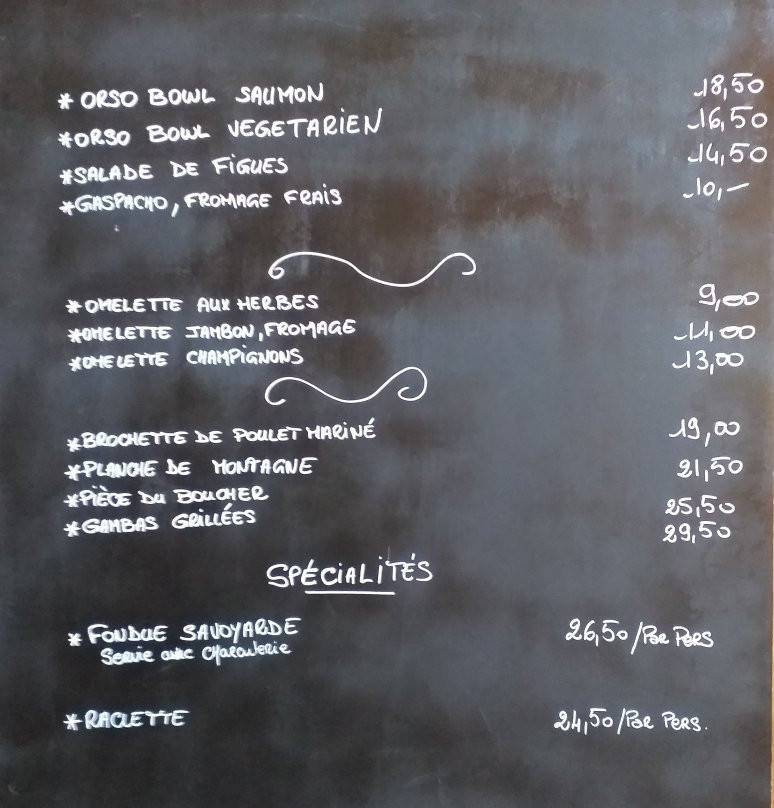 * ORSO BOWL SAUMON 18,50
* ORSO BOWL VEGETARIEN 16,50
* SALADE DE FIGUES 14,50
* GASPACHO, FROMAGE FRAIS 10,—
* OMELETTE AUX HERBES 9,00
* OMELETTE JAMBON, FROMAGE 11,00
* OMELETTE CHAMPIGNONS 13,00
* BROCHETTE DE POULET MARINÉ 19,00
* PLANCHE DE MONTAGNE 21,50
* PIÈCE DU BOUCHER 25,50
* GAMBAS GRILLÉES 29,50
SPÉCIALITÉS
* FONDUE SAVOYARDE 26,50/Par Pers
Servie avec Charcuterie
* RACLETTE 24,50/Par Pers.